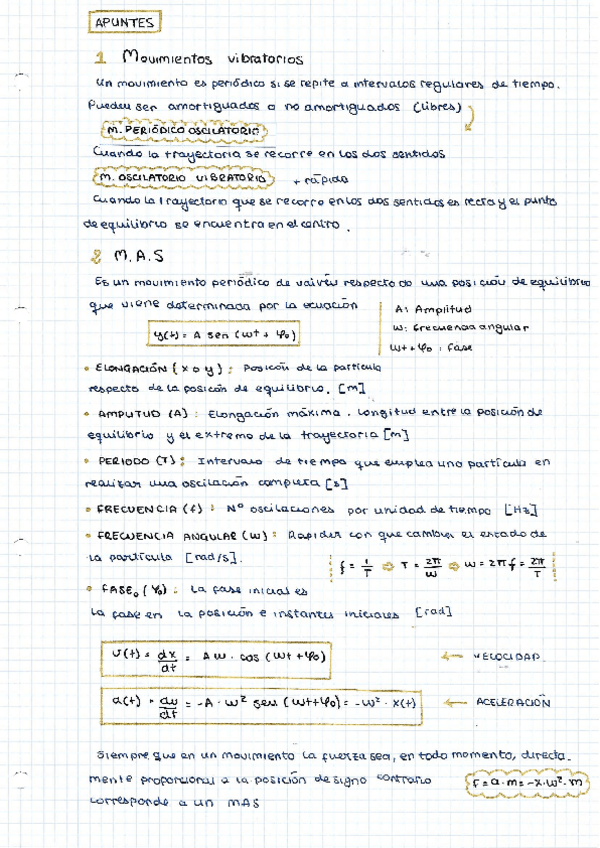 APUNTES
1 Movimientos vibratorios
Un movimiento es periódico si se repite a intervalos regulares de tiempo.
Pueden ser amortiguados o no amortiguados (libres)
M. PERIÓDICO OSCILATORIO
Cuando la trayectoria se recorre en los dos sentidos
M. OSCILATORIO VIBRATORIO + rápido
Cuando la trayectoria que se recorre en los dos sentidos es recta y el punto
de equilibrio se encuentra en el centro.
2 M.A.S
Es un movimiento periódico de vaivén respecto de una posición de equilibrio
que viene determinada por la ecuación
A: Amplitud
y(t) = A sen (ωt + φ₀)
ω: frecuencia angular
ωt + φ₀: fase
• ELONGACIÓN (x o y): Posición de la partícula
respecto de la posición de equilibrio. [m]
• AMPLITUD (A): Elongación máxima. Longitud entre la posición de
equilibrio y el extremo de la trayectoria [m]
• PERIODO (T): Intervalo de tiempo que emplea una partícula en
realizar una oscilación completa [s]
• FRECUENCIA (f): Nº oscilaciones por unidad de tiempo [Hz]
• FRECUENCIA ANGULAR (ω): Rapidez con que cambia el estado de
la partícula [rad/s].
f = 1/T ⇨ T = 2π/ω ⇨ ω = 2πf = 2π/T
• FASE₀ (φ₀): La fase inicial es
la fase en la posición e instantes iniciales [rad]
v(t) = dx/dt = Aω · cos (ωt + φ₀) ← VELOCIDAD
a(t) = dv/dt = -A · ω² sen (ωt + φ₀) = -ω² · x(t) ← ACELERACIÓN
Siempre que en un movimiento la fuerza sea, en todo momento, directa-
mente proporcional a la posición de signo contrario
F = a · m = -x · ω² · m
corresponde a un MAS